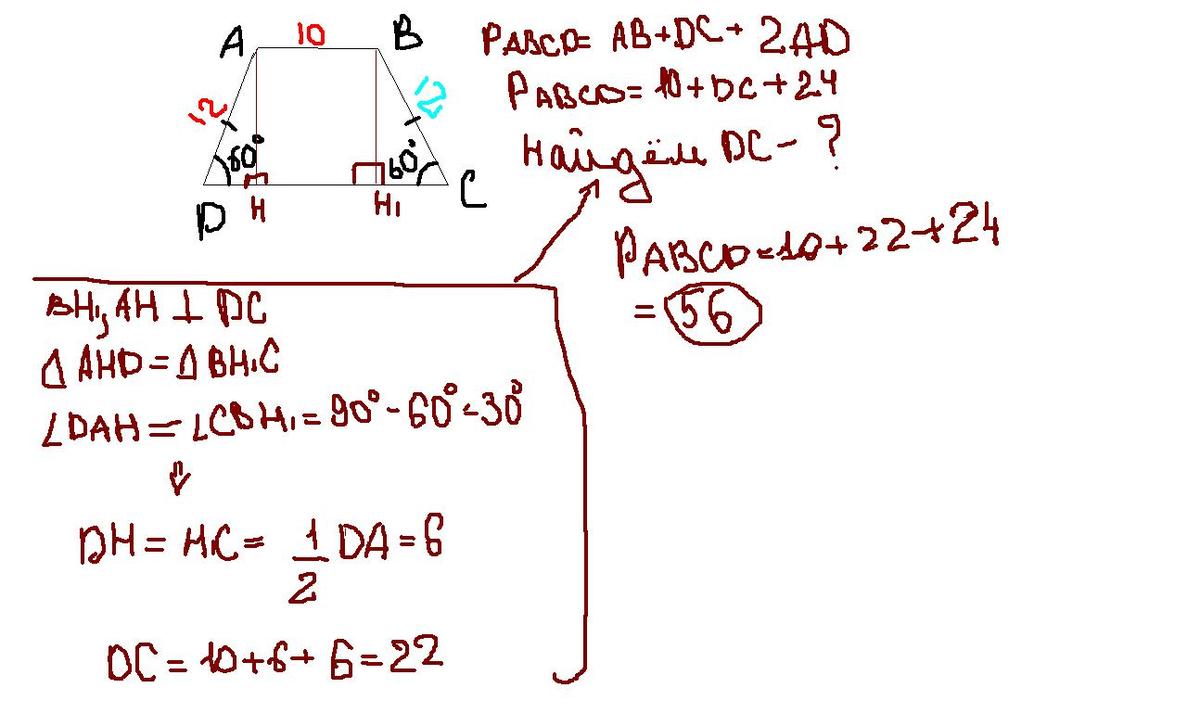 A 10 B
12 12
60° 60°
D H H₁ C
PABCD = AB + DC + 2AD
PABCD = 10 + DC + 24
Найдём DC - ?
PABCD = 10 + 22 + 24
= 56
BH₁, AH ⊥ DC
Δ AHD = Δ BH₁C
∠DAH = ∠CBH₁ = 90° - 60° = 30°
⇓
DH = H₁C = 1/2 DA = 6
DC = 10 + 6 + 6 = 22